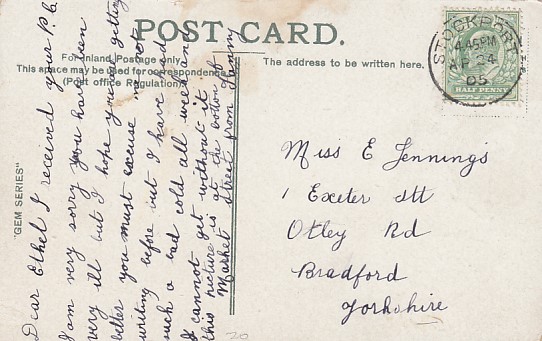 POST CARD.
For Inland Postage only
This space may be used for correspondence
(Post office Regulation)
The address to be written here.
STOCKPORT
4.45PM
AP 24
05
HALF PENNY
"GEM SERIES"
Dear Ethel I received your P.C.
I am very sorry you have been
very ill but I hope you are getting
better you must excuse me not
writing before but I have had
such a bad cold all week and
I cannot get without it
this picture is at the bottom of
Market street from Fanny
Miss E Jennings
1 Exeter Stt
Otley Rd
Bradford
Yorkshire
20